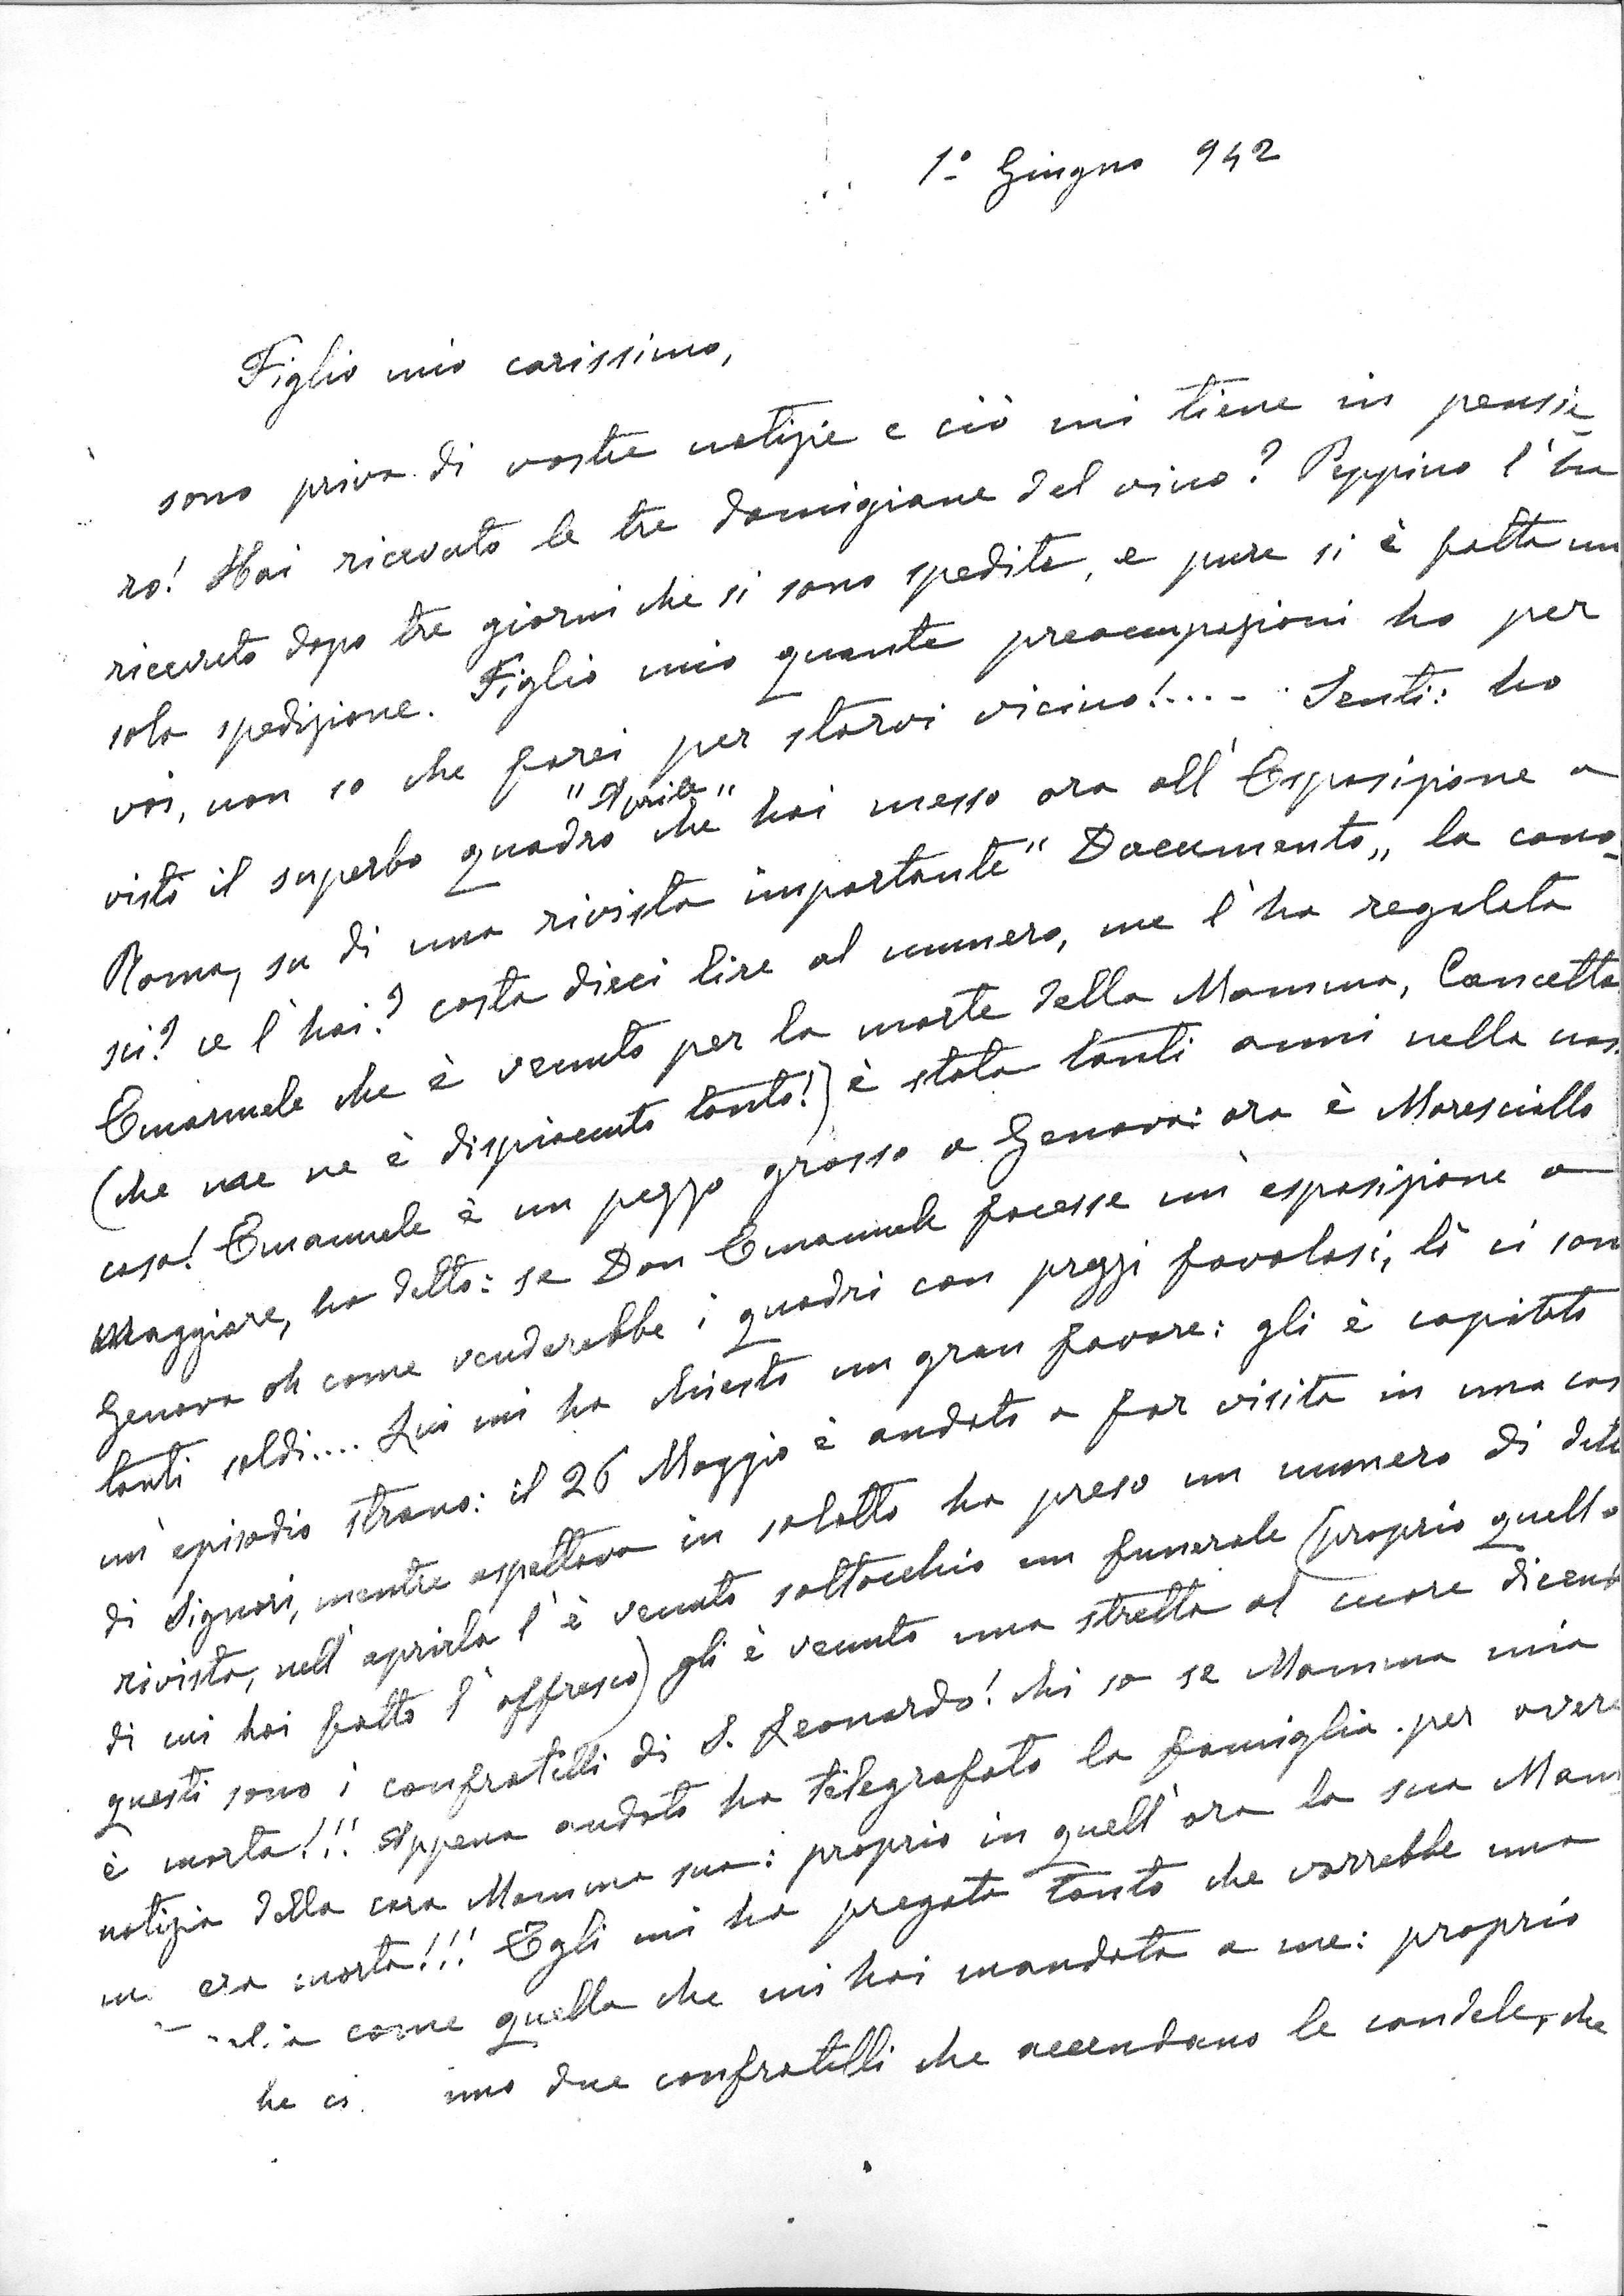 1º Giugno 942
Figlio mio carissimo,
sono priva di vostre notizie e ciò mi tiene in pensie-
ro! Hai ricevuto le tre damigiane del vino? Peppino l'ha
ricevuto dopo tre giorni che si sono spedite, e pure si è fatta un
sola spedizione. Figlio mio quante preoccupazioni ho per
voi, non so che farei per starvi vicino!.... Senti: ho
"Aprile"
visto il superbo quadro che hai messo ora all'Esposizione a
Roma, su di una rivista importante "Documento" la cono-
sci? ce l'hai? costa dieci lire al numero, me l'ha regalata
Emanuele che è venuto per la morte della Mamma, Concetta
(che me ne è dispiaciuto tanto!) è stata tanti anni nella nos
casa! Emanuele è un pezzo grosso a Genova: ora è Maresciallo
maggiore, ha detto: se Don Emanuele facesse un'esposizione a
Genova oh come venderebbe i quadri con prezzi favolosi, là ci son
tanti soldi.... Lui mi ha chiesto un gran favore: gli è capitato
un'episodio strano: il 26 Maggio è andato a far visita in una cas
di Signori, mentre aspettava in salotto ha preso un numero di dett
rivista, nell'aprirla l'è venuto sottocchio un funerale (proprio quello
di cui hai fatto l'affresco) gli è venuto una stretta al cuore dicend
questi sono i confratelli di S. Leonardo! chi sa se Mamma mia
è morta!!! Appena andato ha telegrafato la famiglia per avere
notizia della cara Mamma sua: proprio in quell'ora la sua Mam-
ma era morta!!! Egli mi ha pregata tanto che vorrebbe una
come quella che mi hai mandata a me: proprio
due confratelli che accendano le candele, che